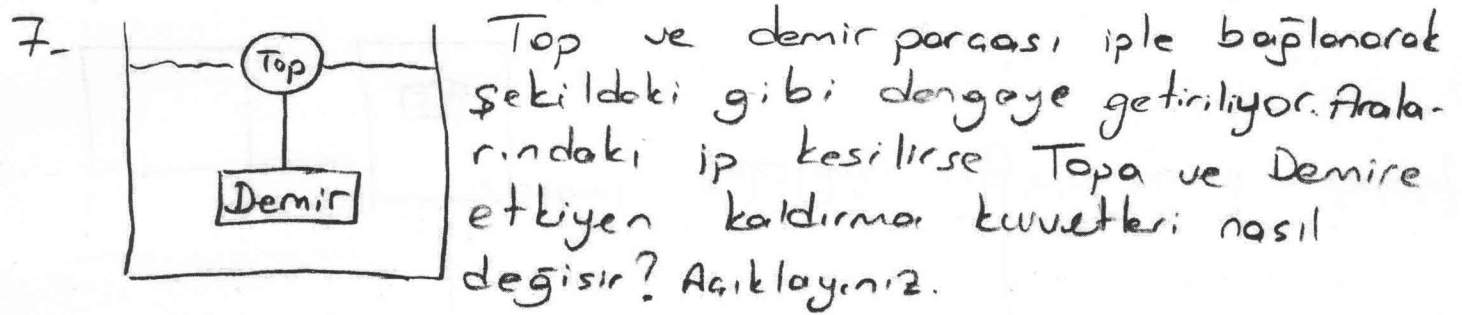 7- Top ve demir parçası iple bağlanarak
Top
şekildeki gibi dengeye getiriliyor. Arala-
rındaki ip kesilirse Topa ve Demire
Demir
etkiyen kaldırma kuvvetleri nasıl
değişir? Açıklayınız.